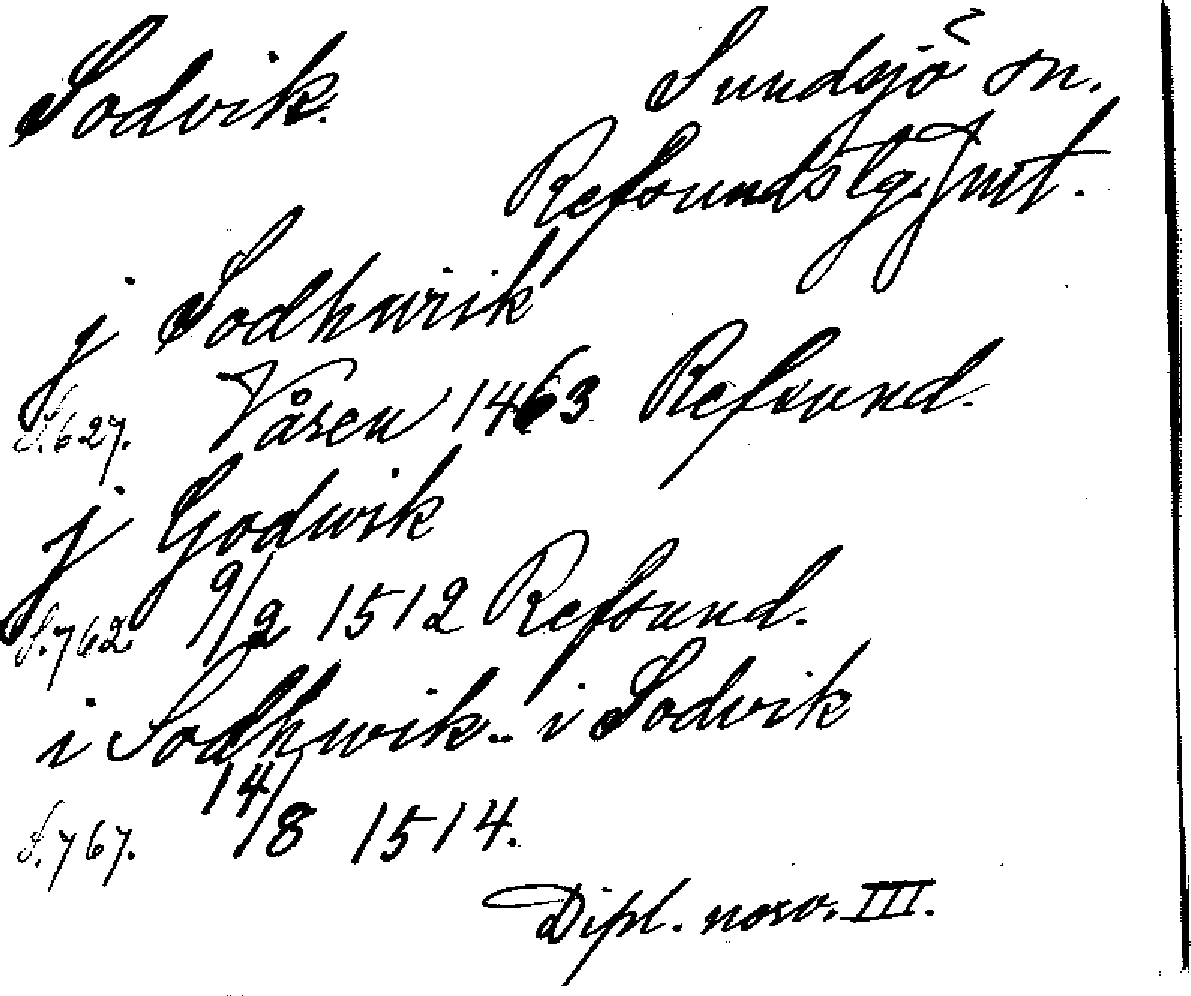 Sodvik. Sundsjö sn.
Refsunds tg. Jmt.
j Sodhwiik
S. 627. Våren 1463 Refsund.
j Godwik
S. 762. 9/2 1512 Refsund.
i Sodhwik.. i Sodvik
S. 767. 14/8 1514.
Dipl. norv. III.